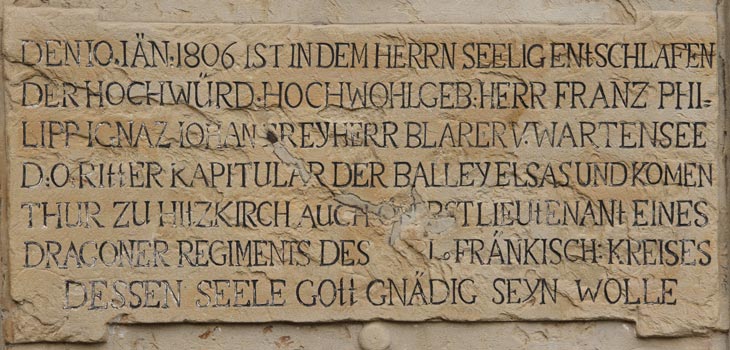 DEN 10. IÄN: 1806 IST IN DEM HERRN SEELIG ENtSCHLAFEN
DER HOCHWÜRD: HOCHWOHLGEB: HERR FRANZ PHI=
LIPP IGNAZ IOHAN FREYHERR BLARER V. WARTENSEE
D: O: RIttER KAPITULAR DER BALLEY ELSAS UND KOMEN
THUR ZU HItZKIRCH AUCH STLIEUtENANt EINES
DRAGONER REGIMENTS DES FRÄNKISCH: KREISES
DESSEN SEELE GOtt GNÄDIG SEYN WOLLE